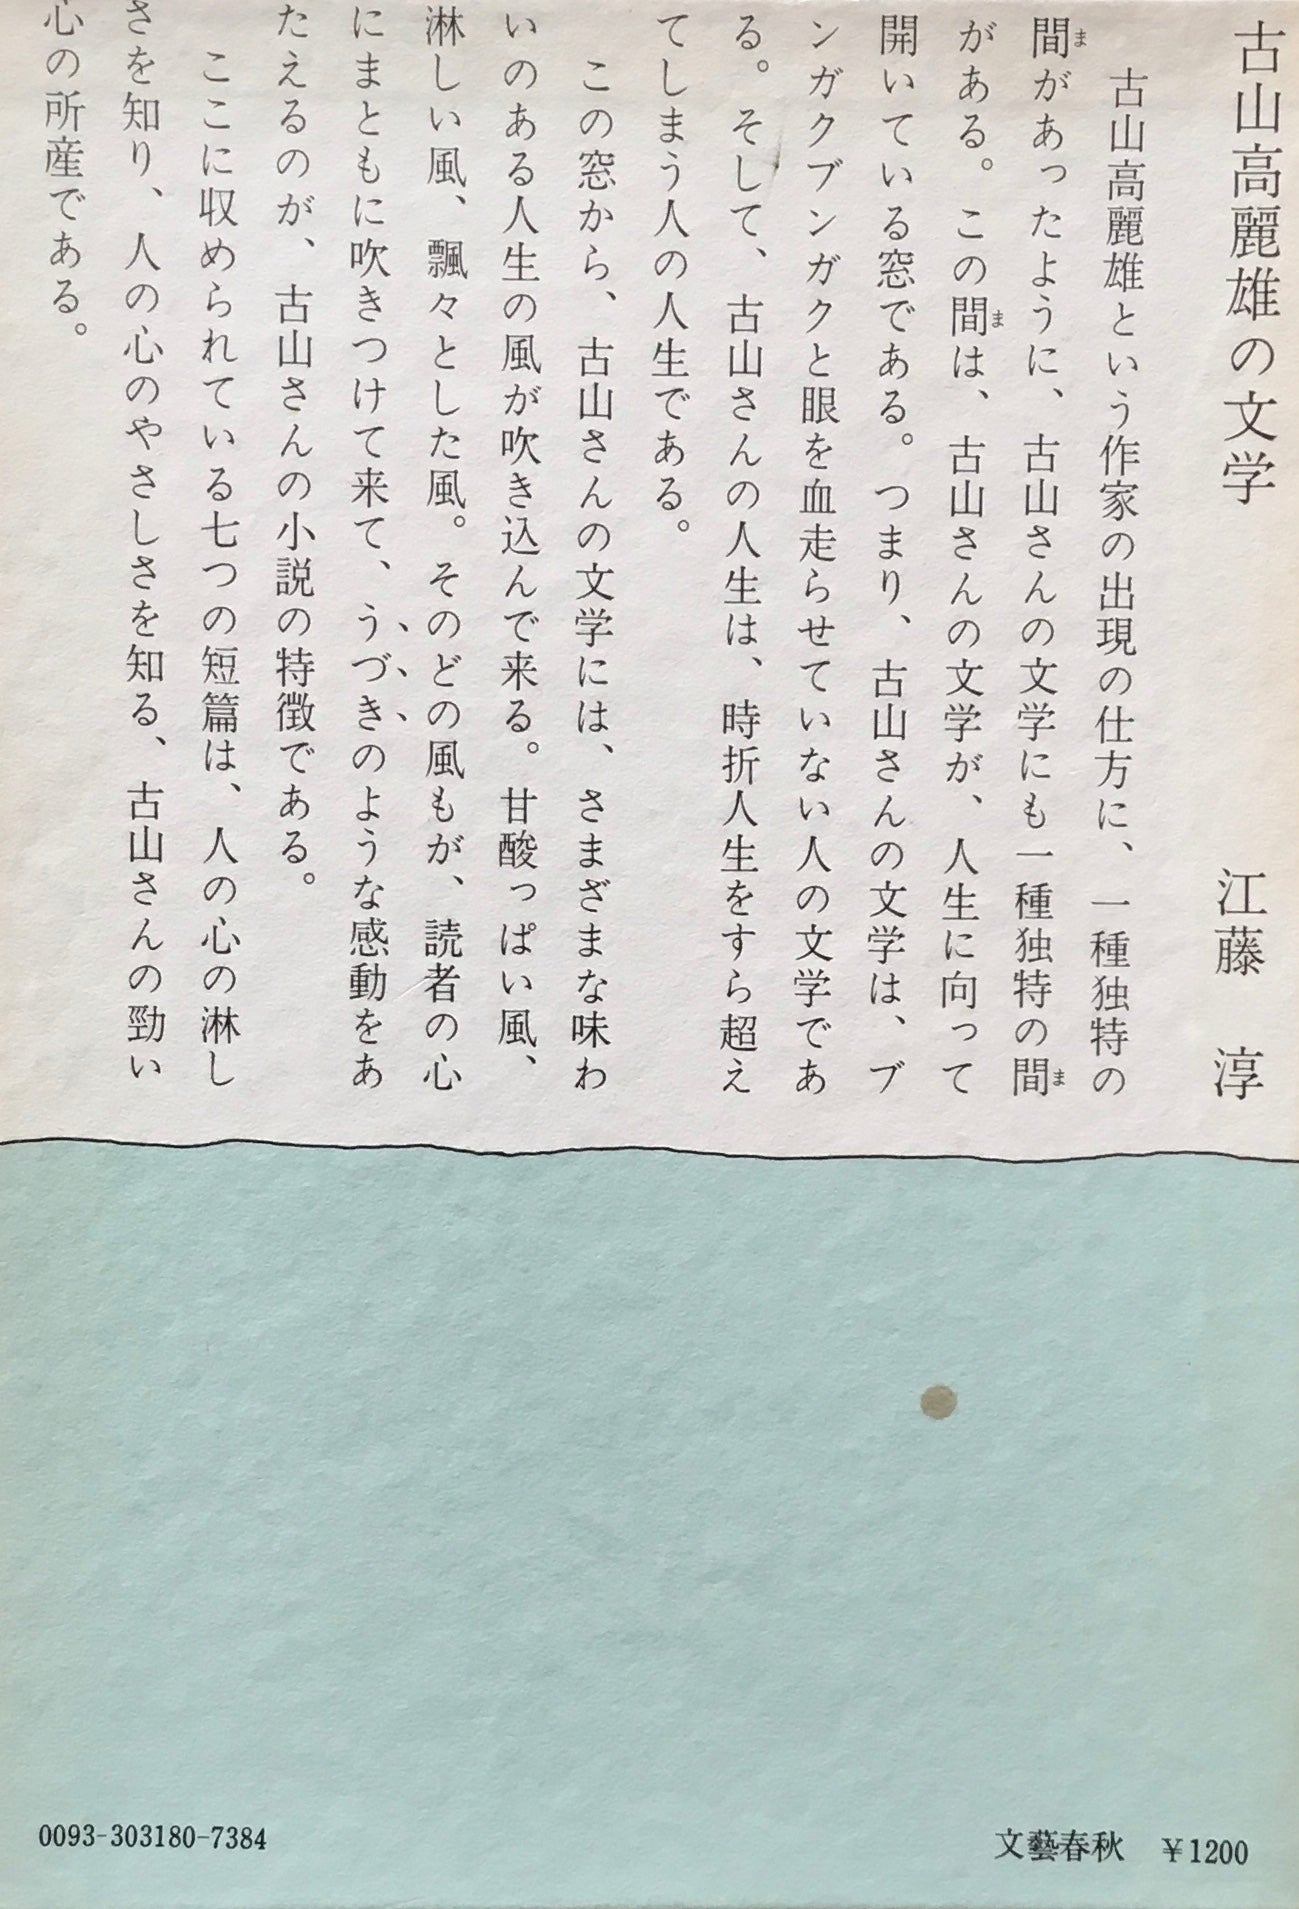 古山高麗雄の文学
江藤 淳
古山高麗雄という作家の出現の仕方に、一種独特の
間があったように、古山さんの文学にも一種独特の間
がある。この間は、古山さんの文学が、人生に向って
開いている窓である。つまり、古山さんの文学は、ブ
ンガクブンガクと眼を血走らせていない人の文学であ
る。そして、古山さんの人生は、時折人生をすら超え
てしまう人の人生である。
この窓から、古山さんの文学には、さまざまな味わ
いのある人生の風が吹き込んで来る。甘酸っぱい風、
淋しい風、飄々とした風。そのどの風もが、読者の心
にまともに吹きつけて来て、うづきのような感動をあ
たえるのが、古山さんの小説の特徴である。
ここに収められている七つの短篇は、人の心の淋し
さを知り、人の心のやさしさを知る、古山さんの勁い
心の所産である。
0093-303180-7384
文藝春秋 ¥1200